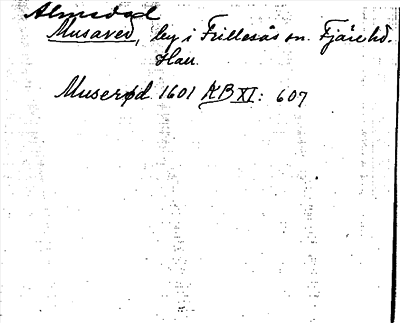 Almedal
Musared, by i Frillesås sn. Fjäre hd.
Hall.
Muserød. 1601 KB XI: 607